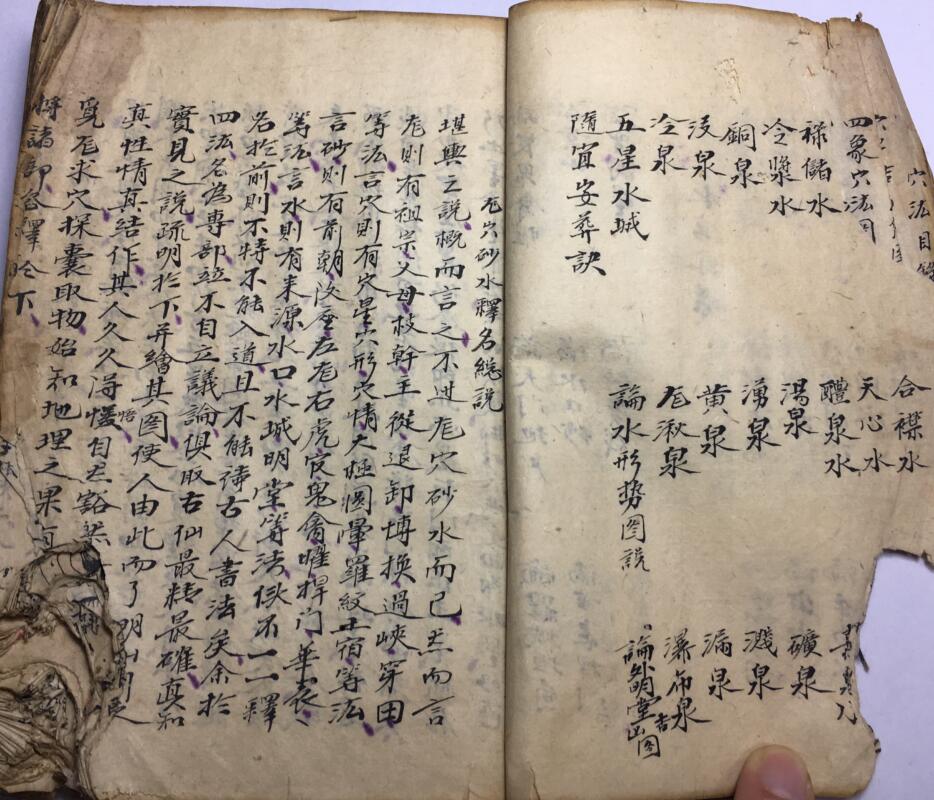 穴法目錄
四象穴法図
祿儲水
合襟水
冷漿水
天心水
醴泉水
礦泉
銅泉
湯泉
濺泉
沒泉
湧泉
漏泉
冷泉
黄泉
瀑布泉
五星水城
尨湫泉
論明堂吉凶图
隨宜安葬訣
論水形势图説
尨穴砂水釋名総説
堪輿之説概而言之不过尨穴砂水而已㤙而言
尨則有祖宗父母枝幹主從退卸博換過峽穿田
等法言穴則有穴星穴形穴情太極圆暈羅紋土宿等法
言砂則有前朝後座左尨右虎官鬼禽曜捍门華表
等法言水則有来源水口水城明堂等法似不一一釋
名於前則不特不能入道且不能待古人書法矣余於
四法名為專部並不自立議論俱取古仙最精最確真知
實見之説疏明於下并繪其图使人由此而了明
真性情真結作其人久久得悟自㤙豁然
覓尨求穴探囊取物始知地理之果有
將諸部名釋於下